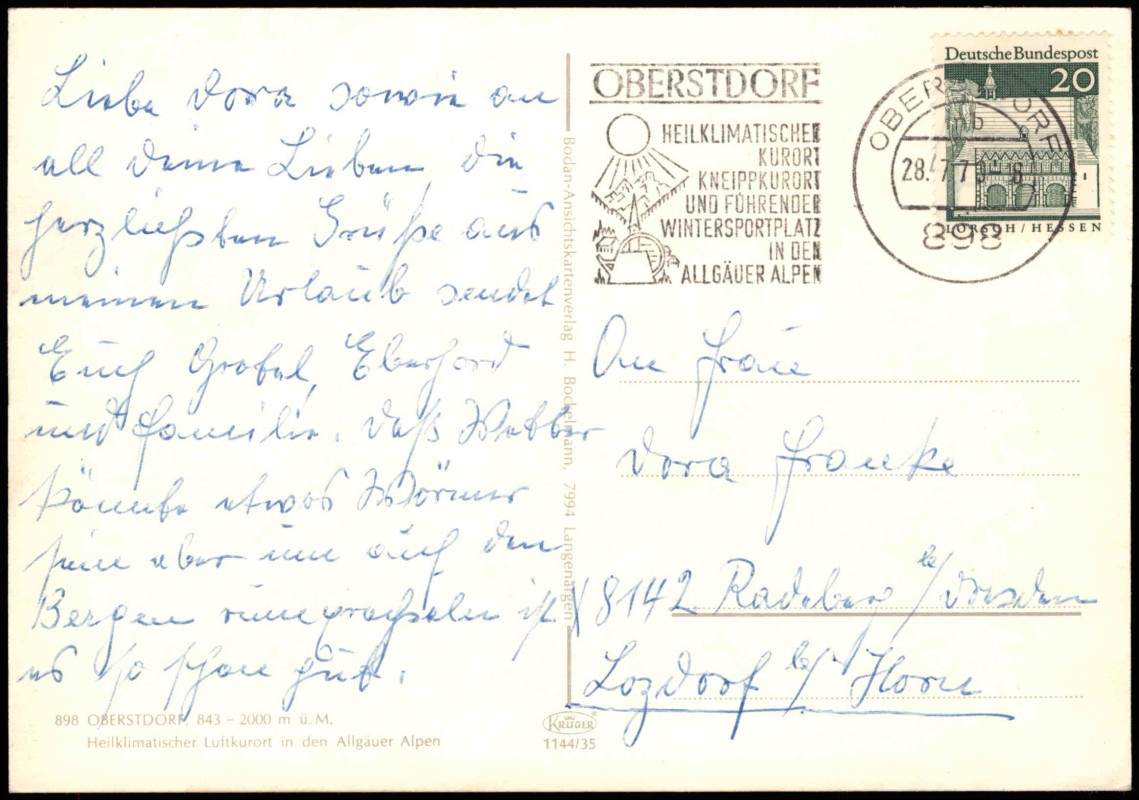 Liebe Dora sowie an
all deine Lieben, die
herzlichsten Grüße aus
meinem Urlaub sendet
Euch Eberhard
und Familie. Daß Wetter
könnte etwas Wärmer
sein aber um auf den
Bergen rumgrachseln ist
es so schon gut.
898 OBERSTDORF, 843 – 2000 m ü. M.
Heilklimatischer Luftkurort in den Allgäuer Alpen
Bodan-Ansichtskartenverlag H. Bockelmann, 7994 Langenargen
KRÜGER
1144/35
OBERSTDORF
HEILKLIMATISCHER
KURORT
KNEIPPKURORT
UND FÜHRENDER
WINTERSPORTPLATZ
IN DEN
ALLGÄUER ALPEN
OBERSTDORF
mb
898
Deutsche Bundespost
20
LORSCH/HESSEN
An Frau
Dora Franke
8142 Radeberg b/Dresden
Lozdorf b/ Horn